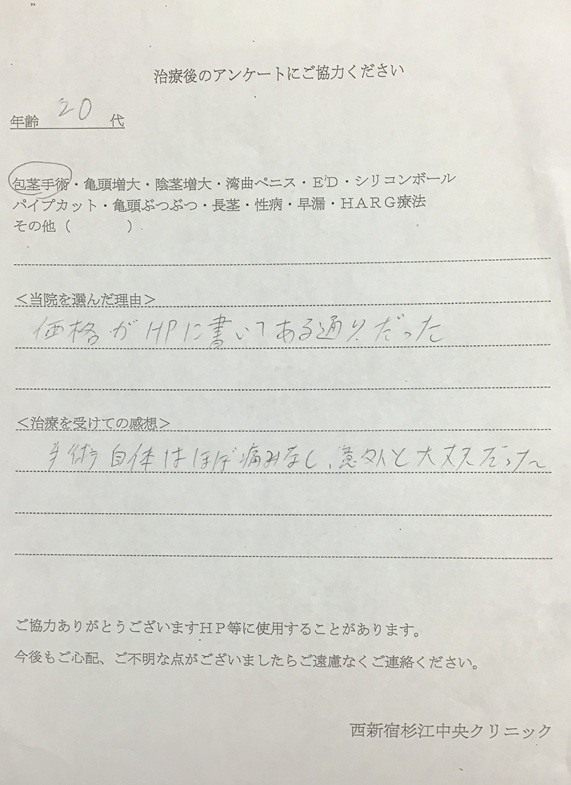 治療後のアンケートにご協力ください
年齢 20 代
包茎手術・亀頭増大・陰茎増大・湾曲ペニス・ED・シリコンボール
パイプカット・亀頭ぶつぶつ・長茎・性病・早漏・HARG療法
その他（　　　　）
＜当院を選んだ理由＞
価格がHPに書いてある通りだった
＜治療を受けての感想＞
手術自体はほぼ痛みなし、意外と大丈夫だった
ご協力ありがとうございますHP等に使用することがあります。
今後もご心配、ご不明な点がございましたらご遠慮なくご連絡ください。
西新宿杉江中央クリニック